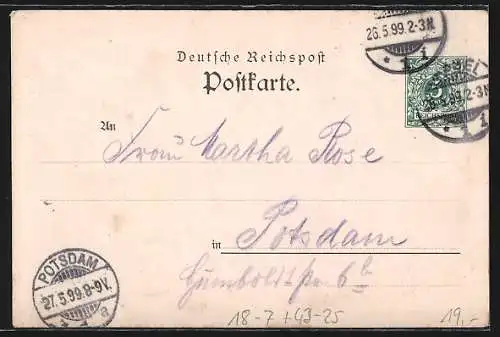 26.5.99.2-3N.
* 1 i
Deutsche Reichspost
Postkarte.
5
26.5.99.2-3N.
* 1 i
An
Frau Martha Rose
in Potsdam
Humboldtstr 6b
POTSDAM
27.5.99.8-9V.
* 1 a
18-7 + 43-25
19,-